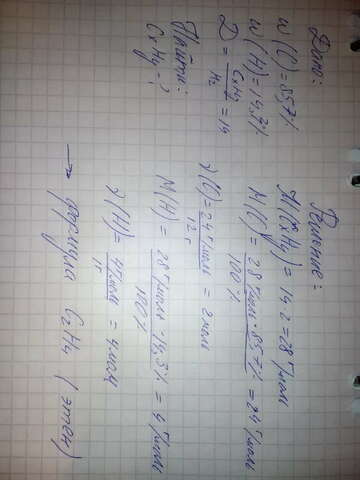 Дано:
w(C)=85,7%
w(H)=14,3%
D = CxHy / H2 = 14
Найти:
CxHy = ?
Решение:
M(CxHy) = 14·2=28 г/моль
M(C) = 28 г/моль · 85,7% / 100% = 24 г/моль
ν(C) = 24 г/моль / 12 г = 2 моль
M(H) = 28 г/моль · 14,3% / 100% = 4 г/моль
ν(H) = 4 г/моль / 1 г = 4 моль
→ формула C2H4 (этен)